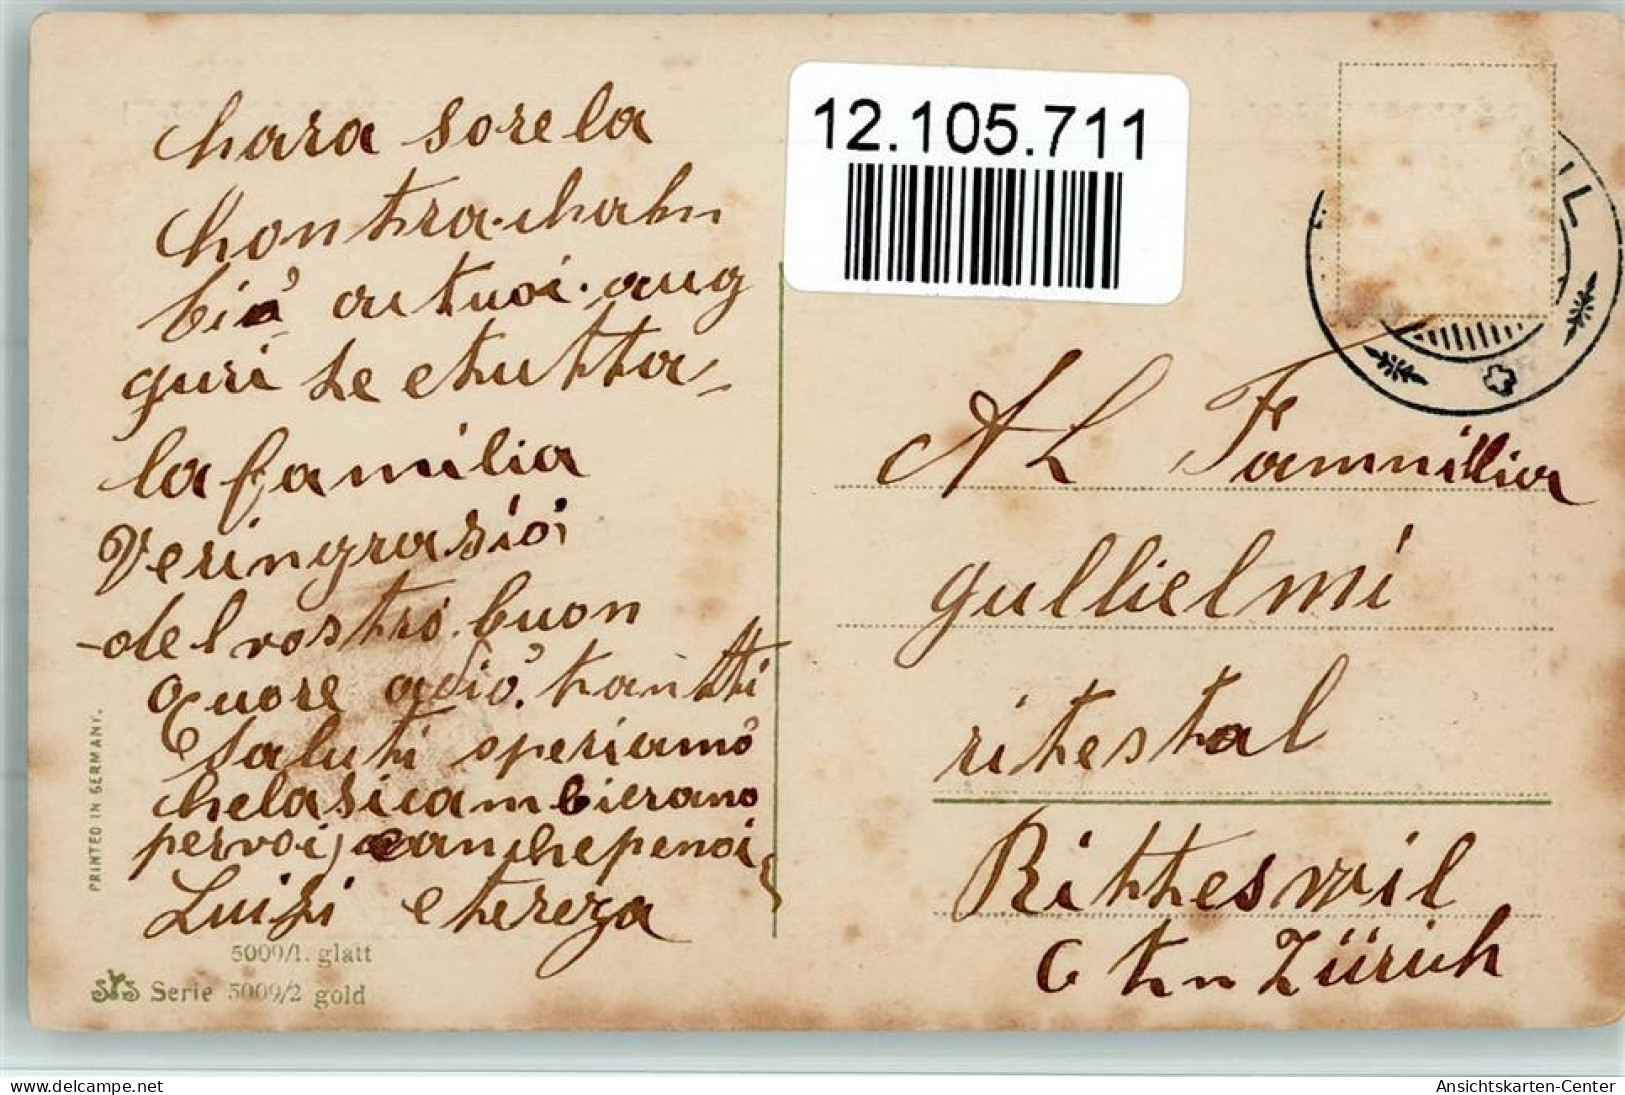 Chara sorela
Chontrachahn
bià ai tuoi aug
guri te etutta=
la familia
Veringrasioi
del vostro buon
quore adiò. tantti
saluti speriamo
chelasicambierano
pervoi canchepenoi
Luisi e tereza
PRINTED IN GERMANY.
5009/1. glatt
Serie 5009/2 gold
12.105.711
IL
Al Famnillia
gullielmi
ritestal
Ritteswil
Ctn Zürich
delcampe.net
Ansichtskarten-Center